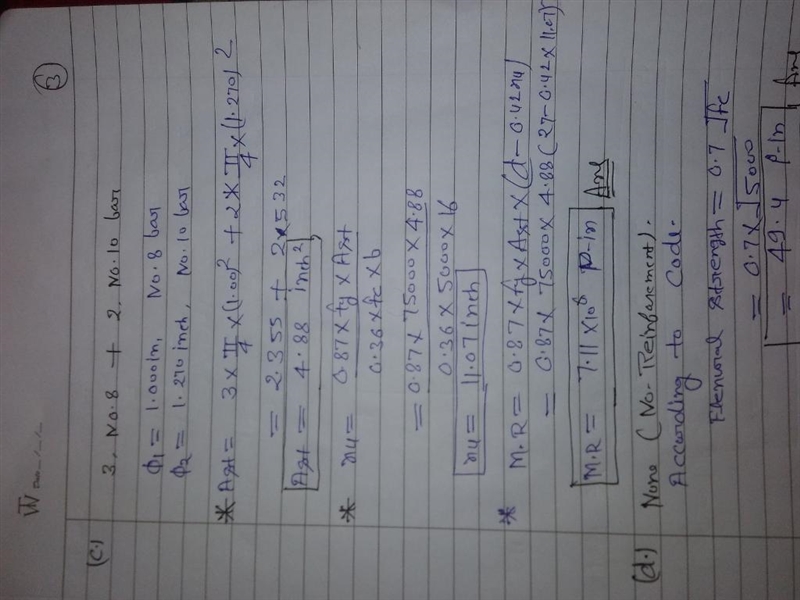 3
(c.) 3, No.8 + 2, No.10 bar
ϕ1 = 1.000in, No.8 bar
ϕ2 = 1.270 inch, No.10 bar
* Ast = 3 × π/4 × (1.00)² + 2 × π/4 × (1.270)²
= 2.355 + 2×532
Ast = 4.88 inch²
* xu = 0.87 × fy × Ast
0.36 × fc × b
= 0.87 × 75000 × 4.88
0.36 × 5000 × 16
xu = 11.07 inch
* M.R = 0.87 × fy × Ast × (d - 0.42xu)
= 0.87 × 75000 × 4.88 (27 - 0.42 × 11.07)
M.R = 7.11 × 10⁸ p-in Ans
(d.) None (No. Reinforcement).
According to Code.
Flexural Strength = 0.7 √fc
= 0.7 × √5000
= 49.4 p-in Ans